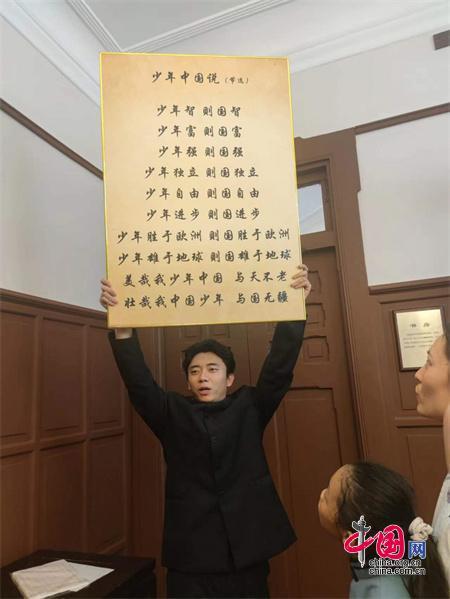 少年中国说（节选）
少年智 则国智
少年富 则国富
少年强 则国强
少年独立 则国独立
少年自由 则国自由
少年进步 则国进步
少年胜于欧洲 则国胜于欧洲
少年雄于地球 则国雄于地球
美哉我少年中国 与天不老
壮哉我中国少年 与国无疆
书房
中国网
china.com.cn
www.china.org.cn